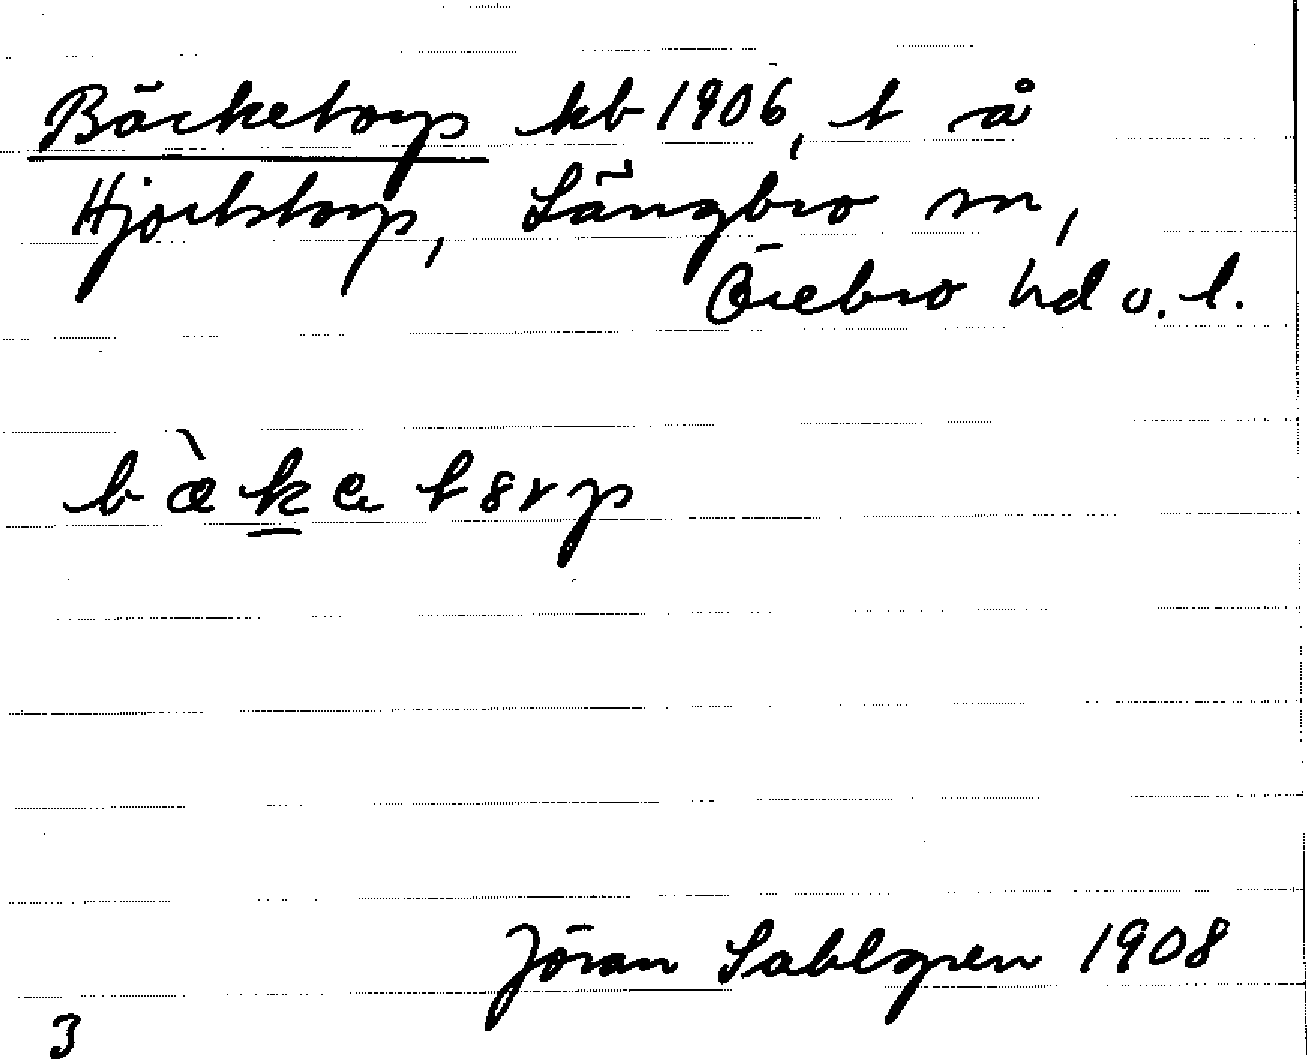 Bäcketorp kb 1906, t å
Hjortstorp, Längbro sn,
Örebro hd o. l.
bæ̀k̲ɐtɤrp
Jöran Sahlgren 1908
3